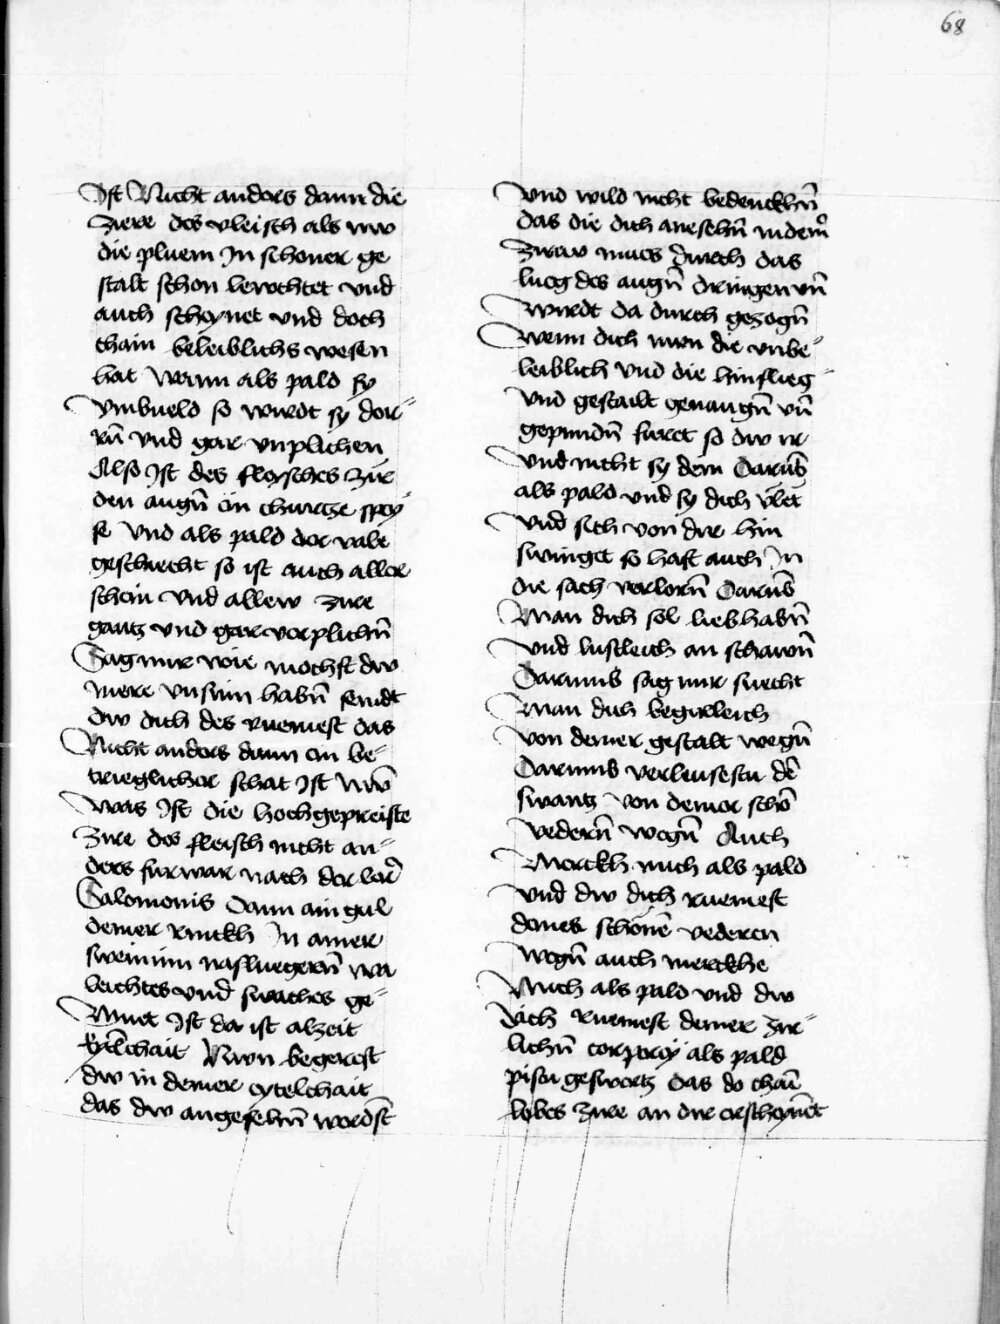 68
Ist Nicht anders dann die
ziere des vleisch als nw
die pluem In schoner ge
stalt schon lewchtet vnd
auch scheynet vnd doch
chain beleiblichs wesen
hat Wann als pald sy
so wirdt sy dor¬
rn̄ vnd gar vnplichen
Also Ist des fleysches zir
den augn̄ ein churtze spey
se vnd als pald der
geschiecht so ist auch aller
schein vnd allew zire
gantz vnd gar verplichn̄
Sag mir wie mochst dw
mere vnsinn habn̄ seindt
dw dich des ruemest das
Nicht anders dann ein be¬
trieglicher schat Ist
was Ist die hochgepreiste
zire des fleisch nicht an¬
ders furwar nach der ler
Salomonis Dann ain gul
deiner rinckh In ainer
swein wa
leichtes vnd swaches ge¬
Muet Ist da ist alzeit
Eytelchait Nwn begerest
dw in deiner eytelchait
das dw angesehn̄ werdst
vnd wild nicht bedenckhn̄
das die dich ansehn̄
mues durch das
lueg des augn̄ dringen vn̄
wirdt da durch gezogn̄
Wenn dich nwn die vnbe¬
leiblich vnd die hinflieg¬
vnd gestallt genaugn̄ vn̄
gepundn̄ fueret so dw ir
vnd nicht sy dein Darūb
als pald vnd sy dich
vnd sich von dir hin
swinget so hast auch In
die sach verlorn̄ Darūb
Man dich sol lieb habn̄
vnd lustleich an schawn̄
Darumb sag mir suecht
Man dich begirleich
von deiner gestalt wegn̄
Darumb verleusestu dē
swantz von deiner schō
vedern̄ wegn̄ Auch
Merckh mich als pald
vnd dw dich ruemest
deines schonē vederen
wegn̄ auch merckhe
Mich als pald vnd dw
dich ruemest deiner zir¬
lichn̄ corprey als pald
pistu geswertz das do chaī
lybes zire an dir erscheynet